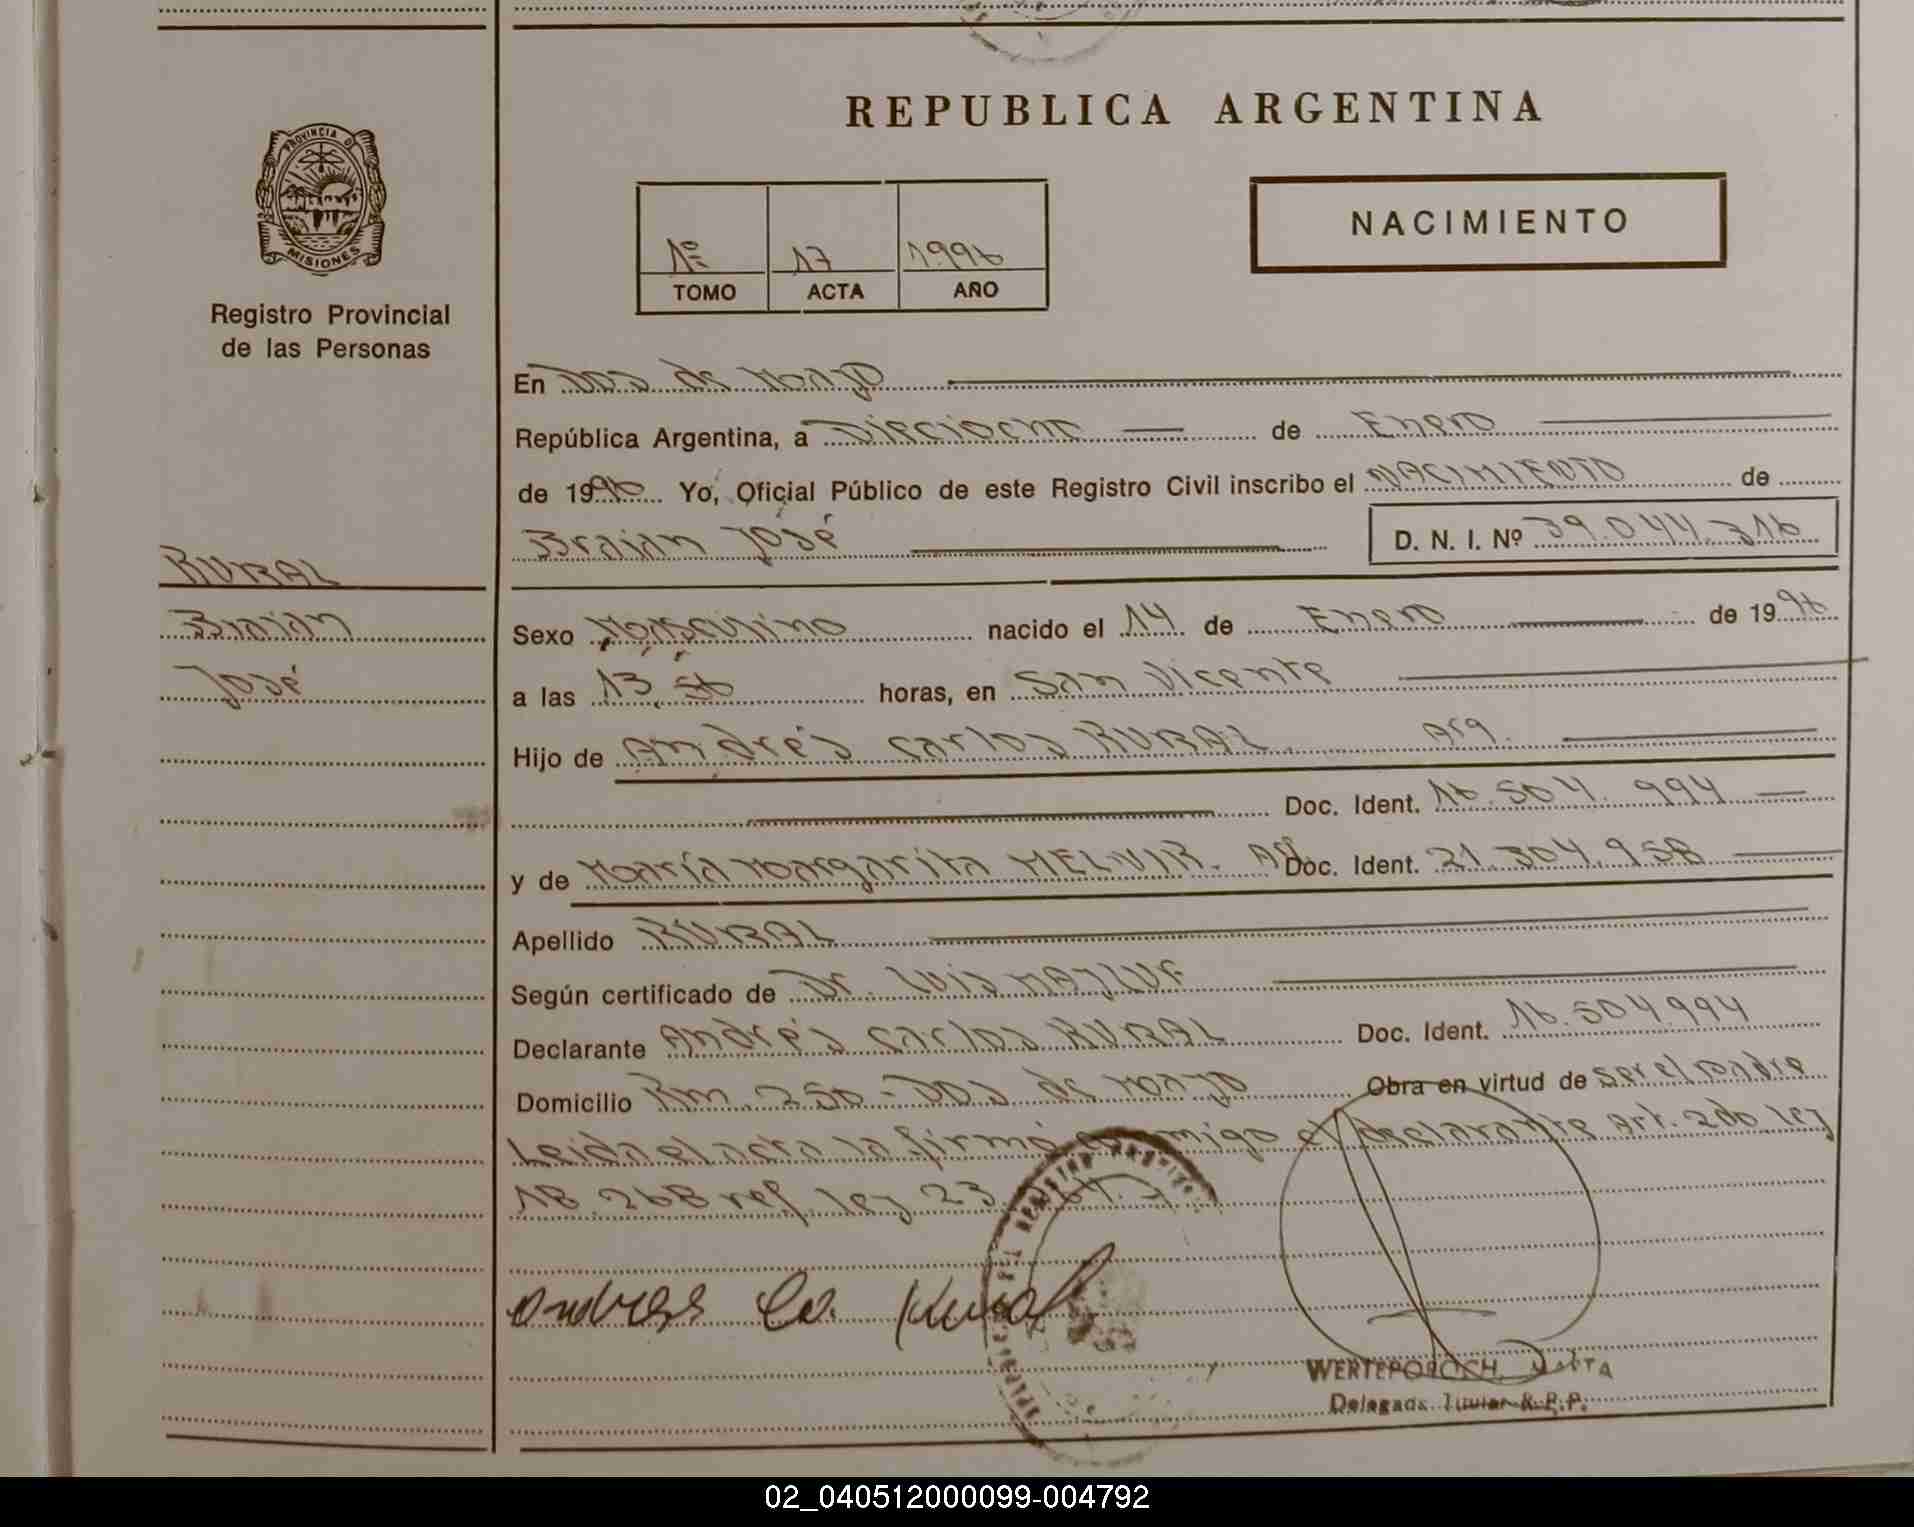 REPUBLICA ARGENTINA
PROVINCIA DE
MISIONES
Registro Provincial
de las Personas
1º 17 1996
TOMO ACTA AÑO
NACIMIENTO
En Dos de Mayo
República Argentina, a Dieciocho de Enero
de 1996 Yo, Oficial Público de este Registro Civil inscribo el NACIMIENTO de
Braian José D. N. I. Nº 39.044.316
RURAL
Braian
José
Sexo Masculino nacido el 14 de Enero de 1996
a las 13,50 horas, en San Vicente
Hijo de Andrés Carlos RURAL. Arg.
Doc. Ident. 16.504.994
y de María Margarita MELNIR. Arg. Doc. Ident. 21.304.958
Apellido RURAL
Según certificado de Dr. Luis MAJLUF
Declarante Andrés Carlos RURAL Doc. Ident. 16.504.994
Domicilio Km. 250 - Dos de Mayo Obra en virtud de ser el padre
Leida el acta la firmó conmigo el declarante Art. 2do. ley
18.268 ref. ley 23.
Andres Ca. Rural
WERTEPOROCH, MARTA
Delegada Titular R.P.P.
02_040512000099-004792